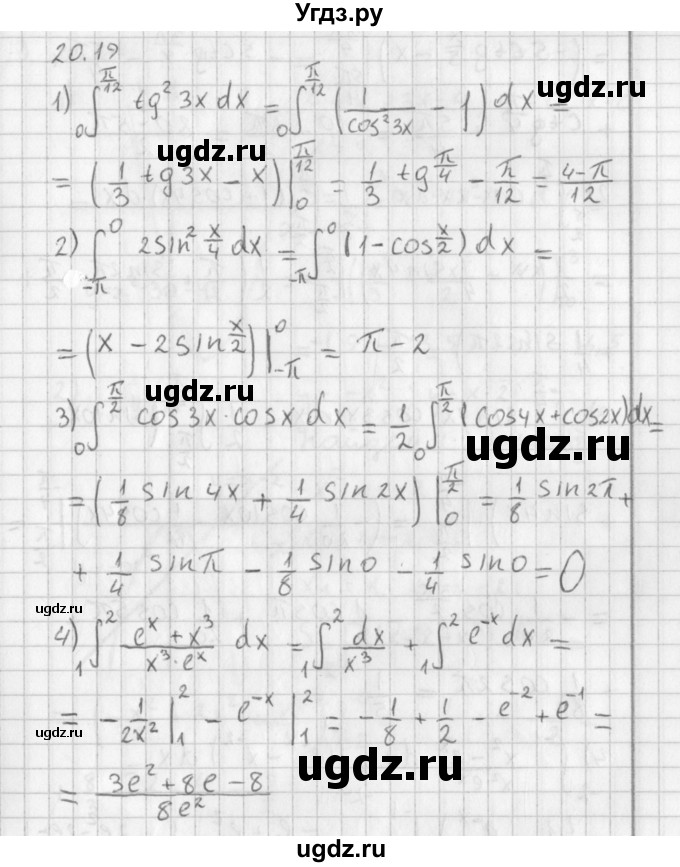 Угдз.ру
20.19
1) ∫₀^{π/12} tg² 3x dx = ∫₀^{π/12} (1/cos²3x - 1) dx =
ugdz.ru
ugdz.ru
= (1/3 tg 3x - x)|₀^{π/12} = 1/3 tg π/4 - π/12 = (4-π)/12
2) ∫_{-π}^0 2sin² x/4 dx = ∫_{-π}^0 (1-cos x/2) dx =
= (x - 2 sin x/2)|_{-π}^0 = π - 2
ugdz.ru
3) ∫₀^{π/2} cos 3x·cosx dx = 1/2 ∫₀^{π/2} (cos4x+cos2x)dx=
ugdz.ru
= (1/8 sin 4x + 1/4 sin 2x)|₀^{π/2} = 1/8 sin2π+
+ 1/4 sinπ - 1/8 sin0 - 1/4 sin0 = 0
ugdz.ru
4) ∫₁² (e^x + x³)/(x³·e^x) dx = ∫₁² dx/x³ + ∫₁² e^{-x} dx =
= - 1/(2x²)|₁² - e^{-x}|₁² = - 1/8 + 1/2 - e^{-2} + e^{-1} =
ugdz.ru
ugdz.ru
= (3e² + 8e - 8)/(8e²)
ugdz.ru